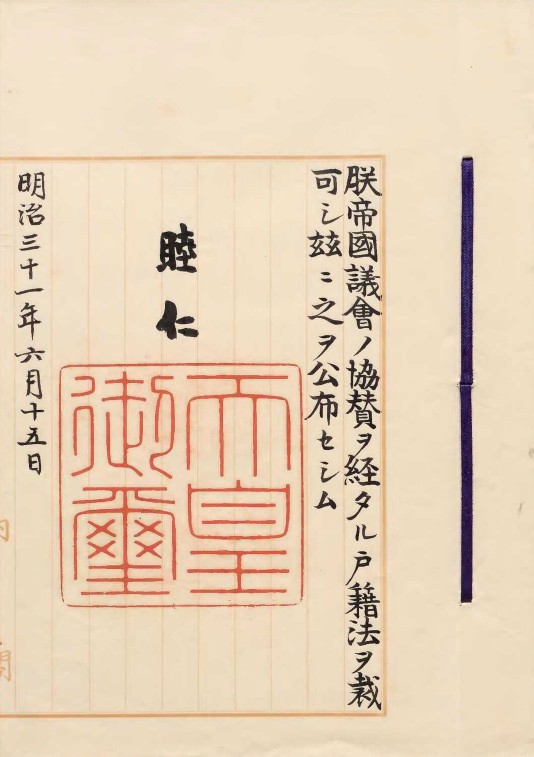 朕帝國議會ノ協賛ヲ経タル戸籍法ヲ裁
可シ玆ニ之ヲ公布セシム
睦仁
天皇
御璽
明治三十一年六月十五日
内
閣